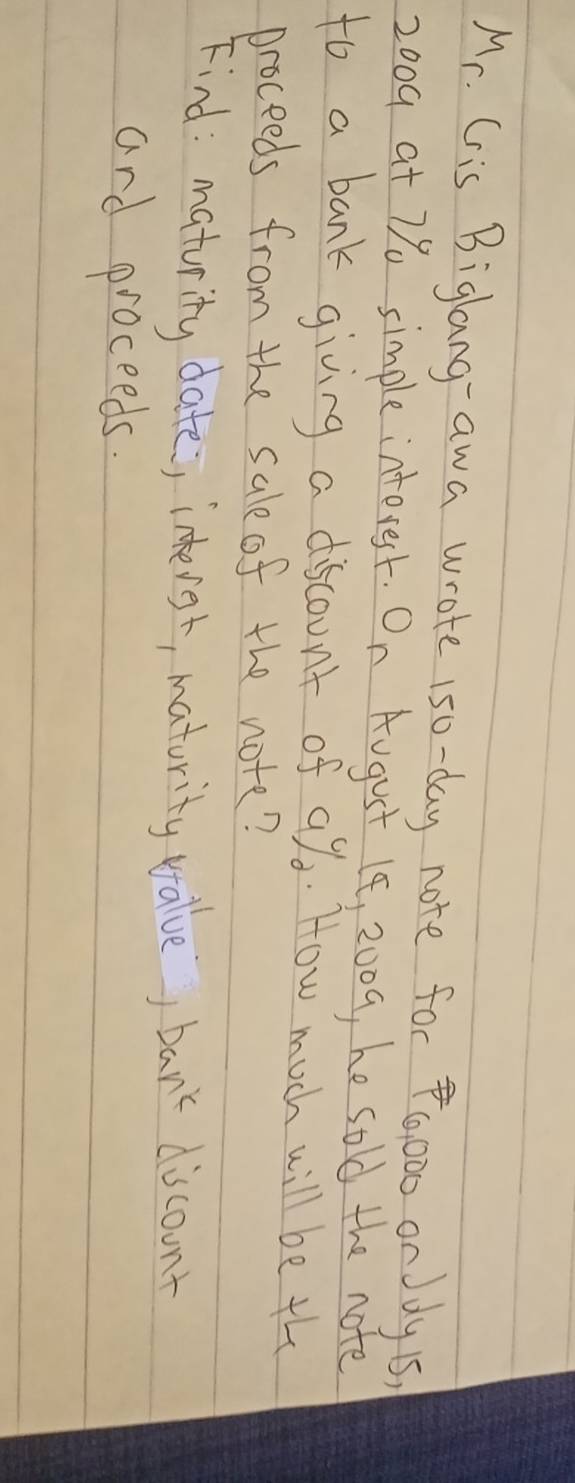 Mr. Cris Biglang-awa wrote 150-day note for ₱6,000 on July 15,
2009 at 7% simple interest. On August 18, 2009, he sold the note
to a bank giving a discount of 9%. How much will be the
proceeds from the sale of the note?
Find: maturity date, interest, maturity value, bank discount
and proceeds.